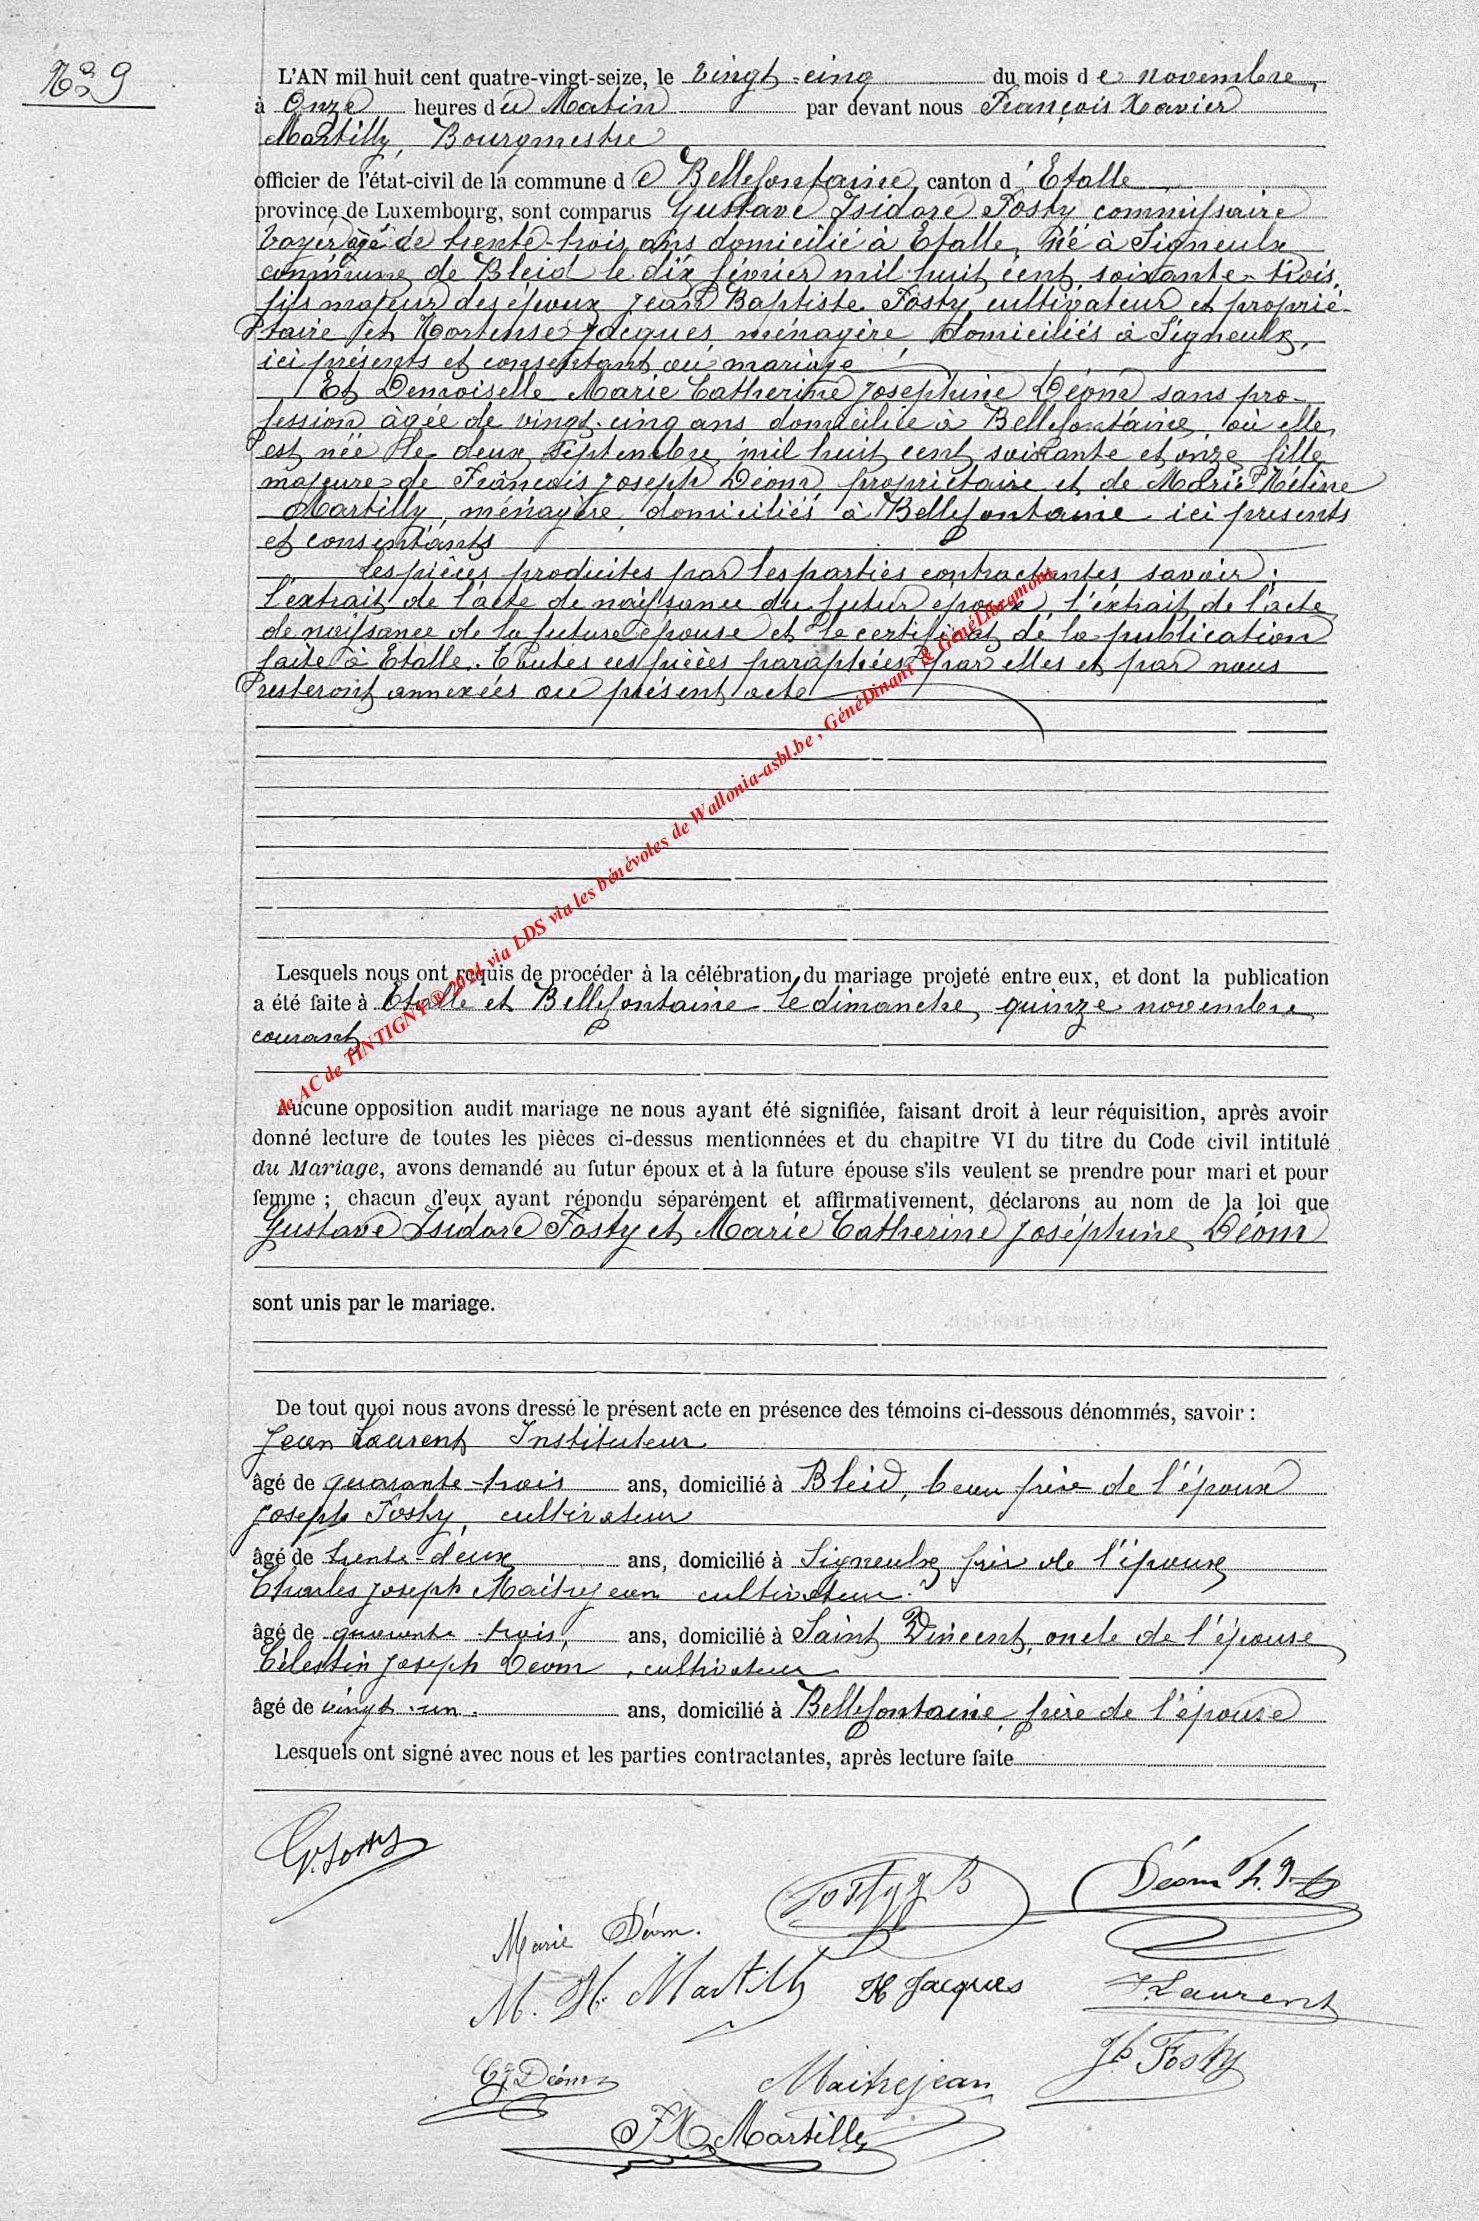 No 9
L'AN mil huit cent quatre-vingt-seize, le vingt-cinq du mois de novembre,
à Onze heures du Matin par devant nous François Xavier
Martilly, Bourgmestre
officier de l'état-civil de la commune de Bellefontaine, canton d'Etalle
province de Luxembourg, sont comparus Gustave Isidore Fosty commissaire
voyer âgé de trente-trois ans domicilié à Etalle, né à Signeulx
commune de Bleid le dix février mil huit cent soixante-trois,
fils majeur des époux Jean Baptiste Fosty cultivateur et proprié-
taire et Hortense Jacques, ménagère domiciliés à Signeulx,
ici présents et consentant au mariage
Et Demoiselle Marie Catherine Joséphine Déom sans pro-
fession âgée de vingt-cinq ans domiciliée à Bellefontaine, où elle
est née le deux septembre mil huit cent soixante et onze, fille
majeure de François Joseph Déom propriétaire et de Marie Hélène
Martilly, ménagère, domiciliés à Bellefontaine ici présents
et consentants
Les pièces produites par les parties contractantes, savoir :
l'extrait de l'acte de naissance du futur époux, l'extrait de l'acte
de naissance de la future épouse et le certificat de la publication
faite à Etalle. Toutes ces pièces paraphées par elles et par nous
resteront annexées au présent acte
de AC de TINTIGNY ® 2021 via LDS via les bénévoles de Wallonia-asbl.be, GénéDinant & GénéLibramont
Lesquels nous ont requis de procéder à la célébration du mariage projeté entre eux, et dont la publication
a été faite à Etalle et Bellefontaine le dimanche, quinze novembre
courant
Aucune opposition audit mariage ne nous ayant été signifiée, faisant droit à leur réquisition, après avoir
donné lecture de toutes les pièces ci-dessus mentionnées et du chapitre VI du titre du Code civil intitulé
du Mariage, avons demandé au futur époux et à la future épouse s'ils veulent se prendre pour mari et pour
femme ; chacun d'eux ayant répondu séparément et affirmativement, déclarons au nom de la loi que
Gustave Isidore Fosty et Marie Catherine Joséphine Déom
sont unis par le mariage.
De tout quoi nous avons dressé le présent acte en présence des témoins ci-dessous dénommés, savoir :
Jean Laurent Instituteur
âgé de quarante-trois ans, domicilié à Bleid, beau frère de l'époux
Joseph Fosty, cultivateur
âgé de trente-deux ans, domicilié à Signeulx frère de l'époux
Charles Joseph Maitrejean cultivateur
âgé de quarante trois, ans, domicilié à Saint Vincent, oncle de l'épouse
Célestin Joseph Deom, cultivateur
âgé de vingt-un ans, domicilié à Bellefontaine, frère de l'épouse
Lesquels ont signé avec nous et les parties contractantes, après lecture faite
G. Fosty
Fosty J B
Déom f. J.
Marie Déom.
M. H. Martilly
H Jacques
J. Laurent
CJ Déom
Maitrejean
Jh Fosty
FX Martilly